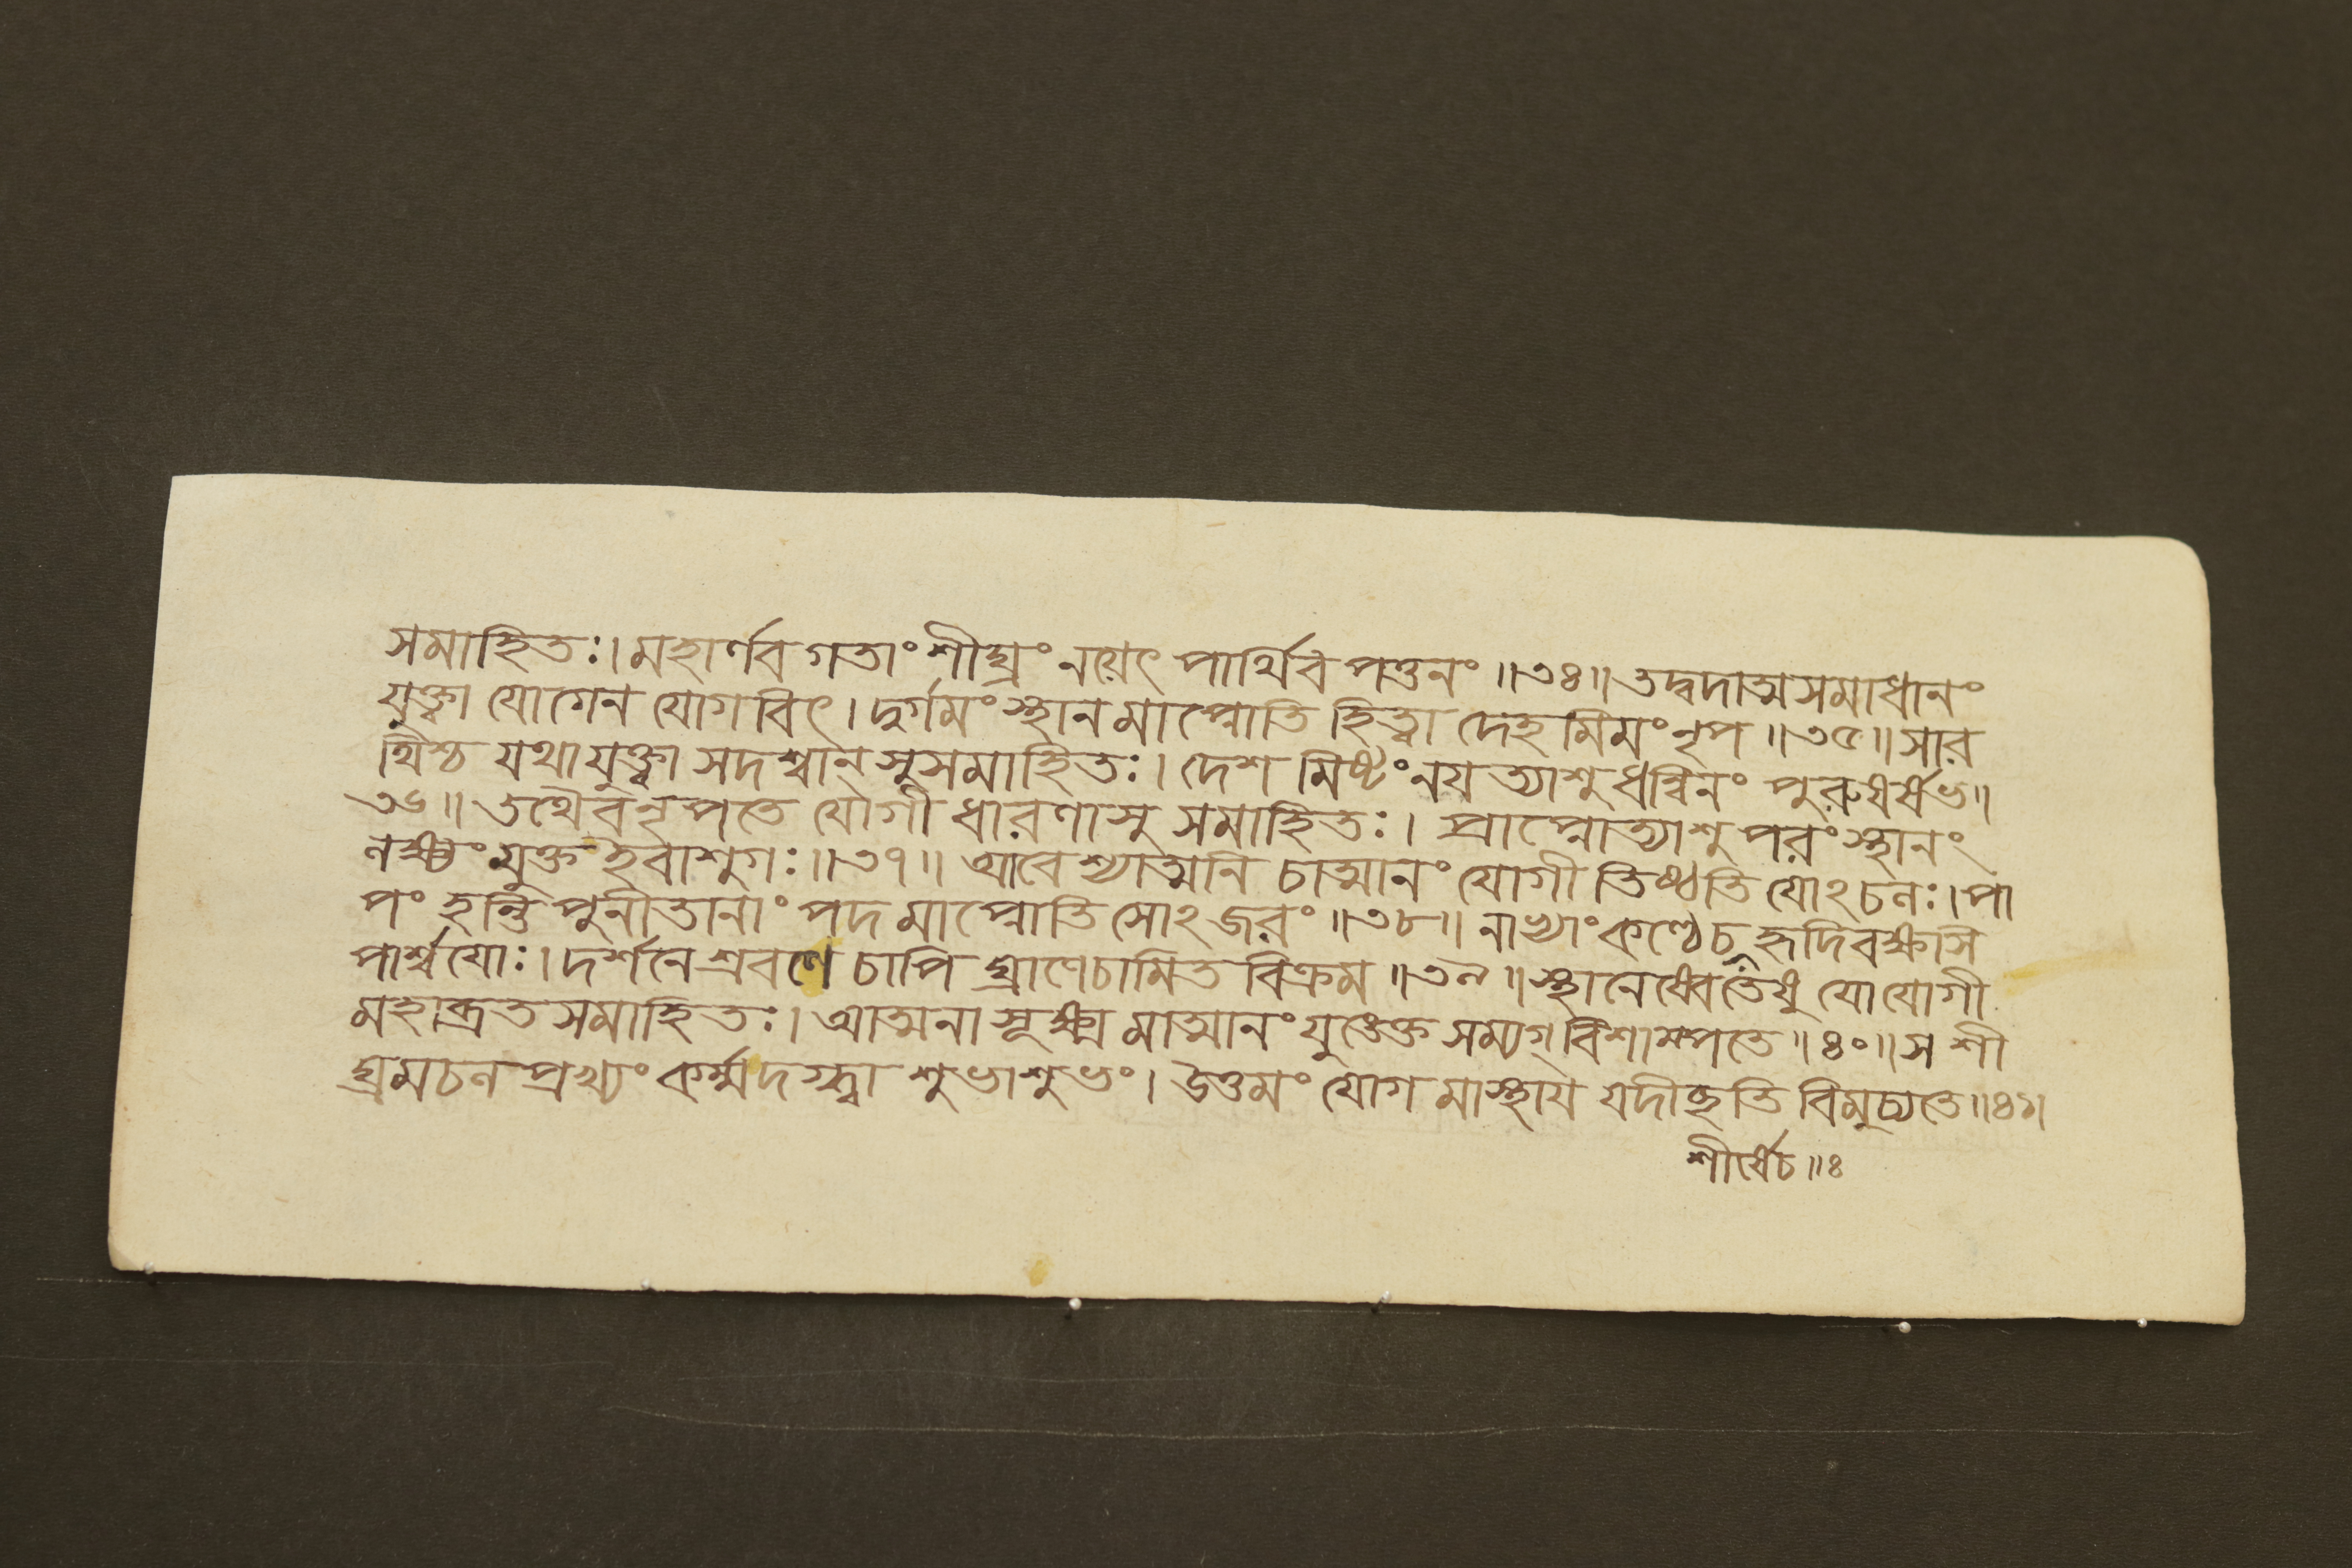 সমাহিতঃ। মহার্ণবগতাং শীঘ্রং নয়েৎ পার্থিব পত্তনং ॥৩৪॥ তদ্বদাত্মসমাধানং
যুক্ত্বা যোগেন যোগবিৎ। দুর্গমং স্থানমাপ্নোতি হিত্বা দেহমিমং নৃপ ॥৩৫॥ সার
থিশ্চ যথা যুক্ত্বা সদশ্বান্ সুসমাহিতঃ। দেশমিষ্টং নয়ত্যাশু ধন্বিনং পুরুষর্ষভ॥
৩৬॥ তথৈব নৃপতে যোগী ধারণাসু সমাহিতঃ। প্রাপ্নোত্যাশু পরং স্থানং
লক্ষ্যং মুক্ত ইবাশুগঃ ॥৩৭॥ আবেশ্যাত্মনি চাত্মানং যোগী তিষ্ঠতি যোঽচলঃ। পা
পং হন্তি পুনীতানাং পদমাপ্নোতি সোঽজরং ॥৩৮॥ নাভ্যাং কণ্ঠে চ হৃদি বক্ষসি
পার্শ্বযোঃ। দর্শনে শ্রবণে চাপি ঘ্রাণে চামিতবিক্রম ॥৩৯॥ স্থানেষ্বেতেষু যো যোগী
মহাব্রতসমাহিতঃ। আত্মনা সূক্ষ্মমাত্মানং যুঙ্ক্তে সম্যগ্ বিশাম্পতে ॥৪০॥ স শী
ঘ্রমচলপ্রখ্যং কর্ম্ম দগ্ধ্বা শুভাশুভং। উত্তমং যোগমাস্থায় যদীচ্ছতি বিমুচ্যতে ॥৪১।
শীর্ষে চ ॥ঃ